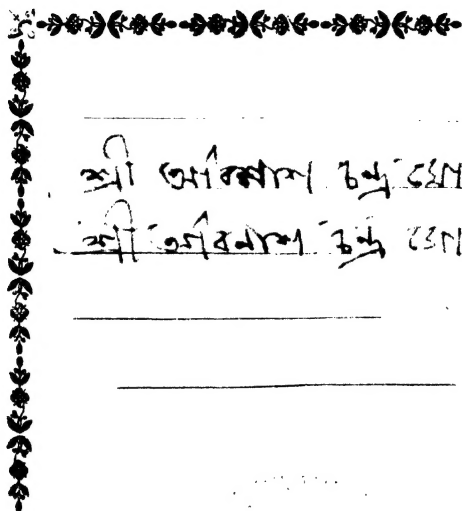 শ্রী অবিনাশ চন্দ্র
শ্রী অবিনাশ চন্দ্র